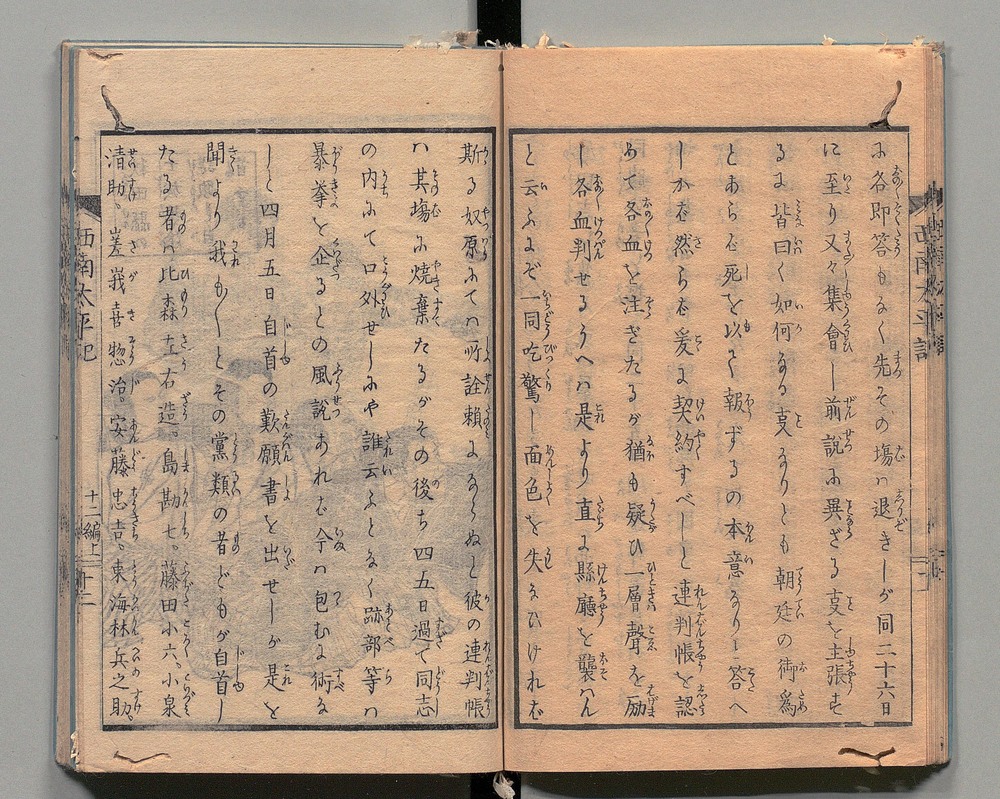 に各即答もなく先その場ハ退きしが同二十六日
に至り又々集會し前説に異ざる支を主張す
るに皆曰く如何なる支なりとも朝廷の御爲
とあらバ死を以て報ずるの本意なりと答へ
しかバ然らバ爰に契約すべしと連判帳を認
めて各血を注ぎたるが猶も疑ひ一層聲を励
し各血判せるうへハ是より直に縣廳を襲はん
と云ふにぞ一同吃驚し面色を失なひけれバ
斯る奴原にてハ所詮頼にならぬと彼の連判帳
ハ其場に焼棄たるがその後ち四五日過て同志
の内にて口外せしにや誰云ふとなく跡部等ハ
暴挙を企るとの風説あれバ今ハ包むに術な
しと四月五日自首の歎願書を出せしが是を
聞より我も〳〵とその黨類の者どもが自首し
たる者ハ比森左右造。島勘七。藤田小六。小泉
清助。嵯峩喜惣治。安藤忠吉。東海林兵之助。
西南太平記
十二編上
十二